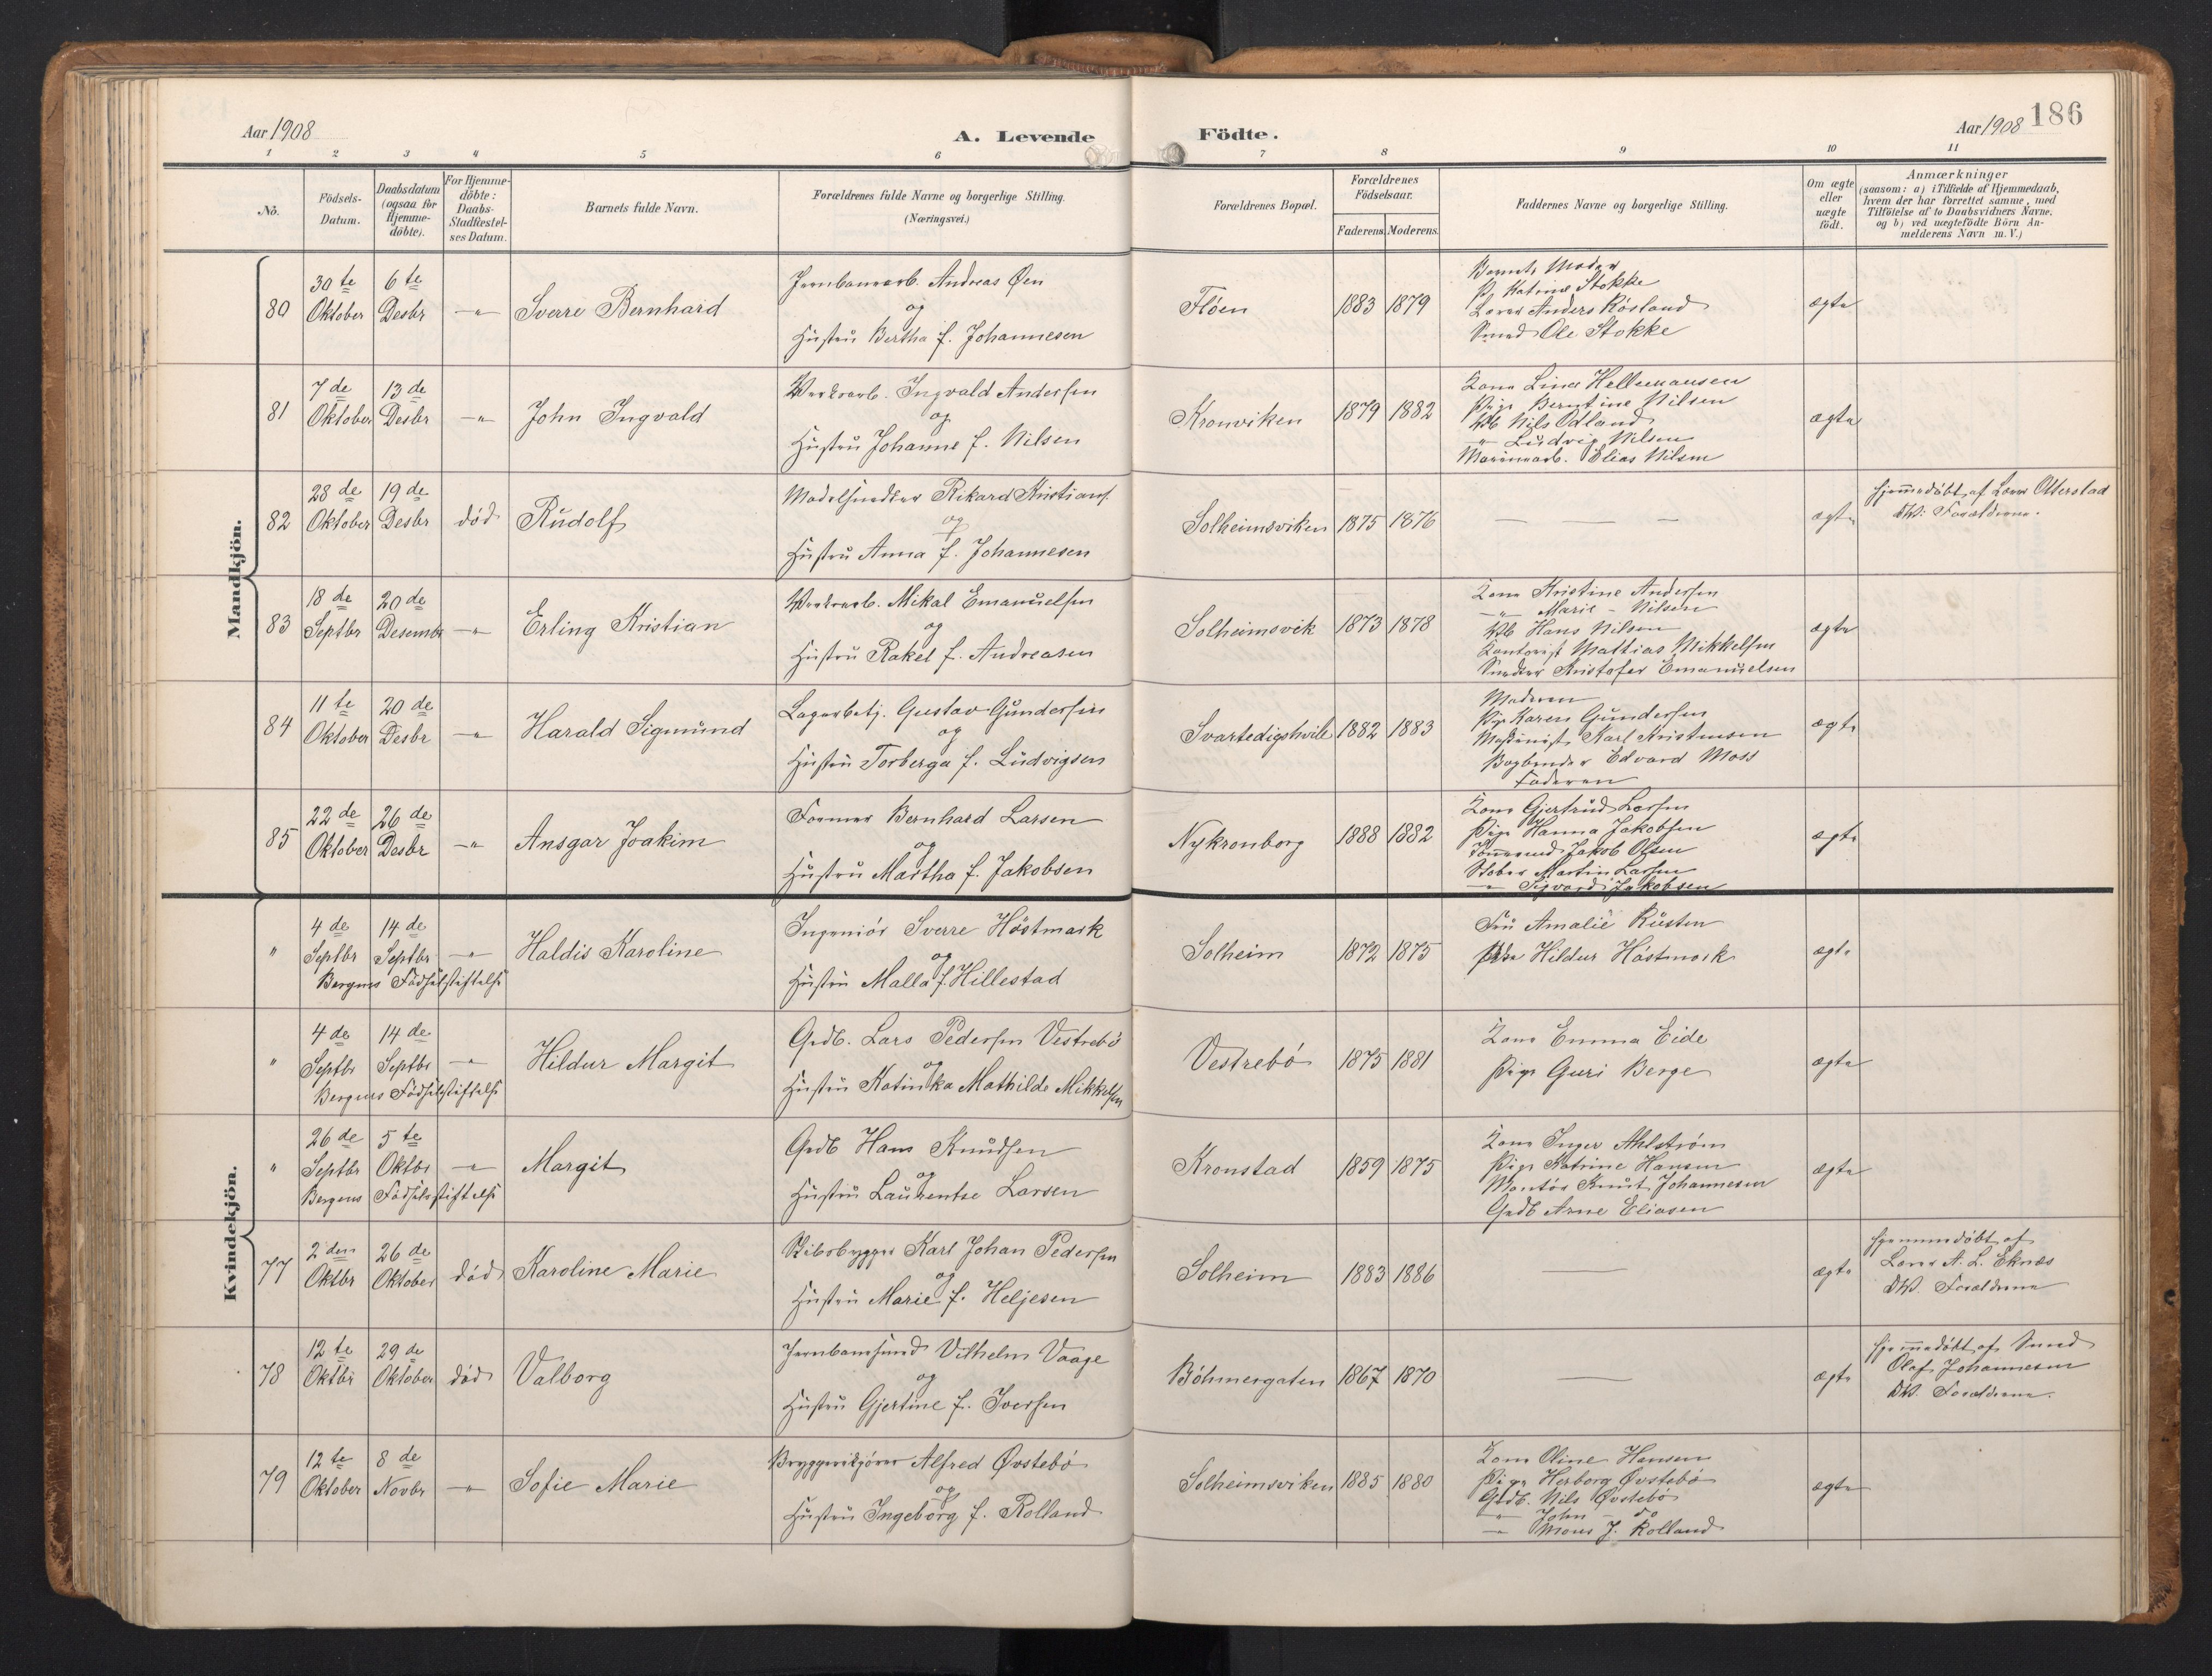 Aar 1908
A. Levende Födte.
Aar 1908
186
1 2 3 4 5 6 7 8 9 10 11
No.
Födsels-Datum.
Daabsdatum (ogsaa for Hjemme-döbte).
For Hjemme-döbte: Daabs-Stadfæstel-ses Datum.
Barnets fulde Navn.
Forældrenes fulde Navne og borgerlige Stilling. (Næringsvei.)
Forældrenes Bopæl.
Forældrenes Födselsaar.
Faderens. Moderens.
Faddernes Navne og borgerlige Stilling.
Om ægte eller uægte födt.
Anmærkninger
(saasom: a) i Tilfælde af Hjemmedaab,
hvem der har forrettet samme, med
Tilföielse af to Daabsvidners Navne.
og b) ved uægtefödte Börn An-
melderens Navn m. V.)
Mandkjön.
80 30te Oktober 6te Desbr -"- Sverre Bernhard
Jernbanearb. Andreas Øen
og
Hustru Bertha f. Johannesen
Fløen 1883 1879
Barnets Moder
Pg. Katrine Stokke
Lærer Anders Røsland
Smed Ole Stokke
ægte
81 7de Oktober 13de Desbr -"- John Ingvald
Verksarb. Ingvald Andersen
og
Hustru Johanne f. Nilsen
Kronviken 1879 1882
Kone Lina Hellemansen
Pige Berntine Nilsen
Nils Odland
-"- Ludvig Nilsen
Elias Nilsen
ægte
82 28de Oktober 19de Desbr död Rudolf
Modelsnedker Rikard Kristians.
og
Hustru Anna f. Johannesen
Solheimsviken 1875 1876
— — —
ægte
Hjemmedöbt af Lærer Otterstad
DV: Forældrene.
83 18de Septbr 20de Desembr -"- Erling Kristian
Verksarb. Mikal Emanuelsen
og
Hustru Rakel f. Andreasen
Solheimsvik 1873 1878
Kone Kristine Andersen
-"- Marie - Nilsen
Hans Nilsen
Kontorist Mattias Mikkelsen
Snedker Kristofer Emanuelsen
ægte
84 11te Oktober 20de Desbr -"- Harald Sigmund
Lagerbetj. Gustav Gundersen
og
Hustru Torberga f. Ludvigsen
Svartedigshvile 1882 1883
Moderen
Pige Karen Gundersen
Maskinist Karl Kristensen
Bogbinder Edvard Moss
Faderen
ægte
85 22de Oktober 26de Desbr -"- Ansgar Joakim
Former Bernhard Larsen
og
Hustru Martha f. Jakobsen
Nykronborg 1888 1882
Kone Gjertrud Larsen
Pige Hanna Jakobsen
Tömmermd Jakob Olsen
Stöber Martin Larsen
-"- Sigvard Jakobsen
ægte
Kvindekjön.
" 4de Septbr 14de Septbr -"- Haldis Karoline
Bergens Födselsstiftelse
Ingeniör Sverre Höstmark
og
Hustru Malla f. Hillestad
Solheim 1872 1875
Fru Amalie Rusten
Hildur Höstmark
ægte
" 4de Septbr 14de Septbr -"- Hildur Margit
Bergens Födselsstiftelse
Grdb. Lars Pedersen Vestrebö
og
Hustru Katinka Mathilde Mikkelsen
Vestrebö 1875 1881
Kone Emma Eide
Pige Guri Berge
ægte
" 26de Septbr 5te Oktbr -"- Margit
Bergens Födselsstiftelse
Grdb Hans Knudsen
og
Hustru Laurentse Larsen
Kronstad 1859 1875
Kone Inger Ahlström
Pige Katrine Hansen
Montör Knut Johannesen
Grdb Arne Eliasen
ægte
77 2den Oktbr 26de Oktober död Karoline Marie
Skibsbygger Karl Johan Pedersen
og
Hustru Marie f. Heljesen
Solheim 1883 1886
—
ægte
Hjemmedöbt af
Lærer A. L. Eknæs
DV. Forældrene
78 12te Oktbr 29de Oktober död Valborg
Jernbanesmed Vilhelm Vaage
og
Hustru Gjertine f. Iversen
Böhmergaten 1867 1870
—
ægte
Hjemmedöbt af Smed
Olaf Johannesen
DV. Forældrene.
79 12te Oktober 8de Novbr -"- Sofie Marie
Bryggerikjörer Alfred Østebö
og
Hustru Ingeborg f. Rolland
Solheimsviken 1885 1880
Kone Oline Hansen
Pige Herborg Østebö
Grdb. Nils Østebö
-"- John - do
-"- Mons J. Rolland
ægte